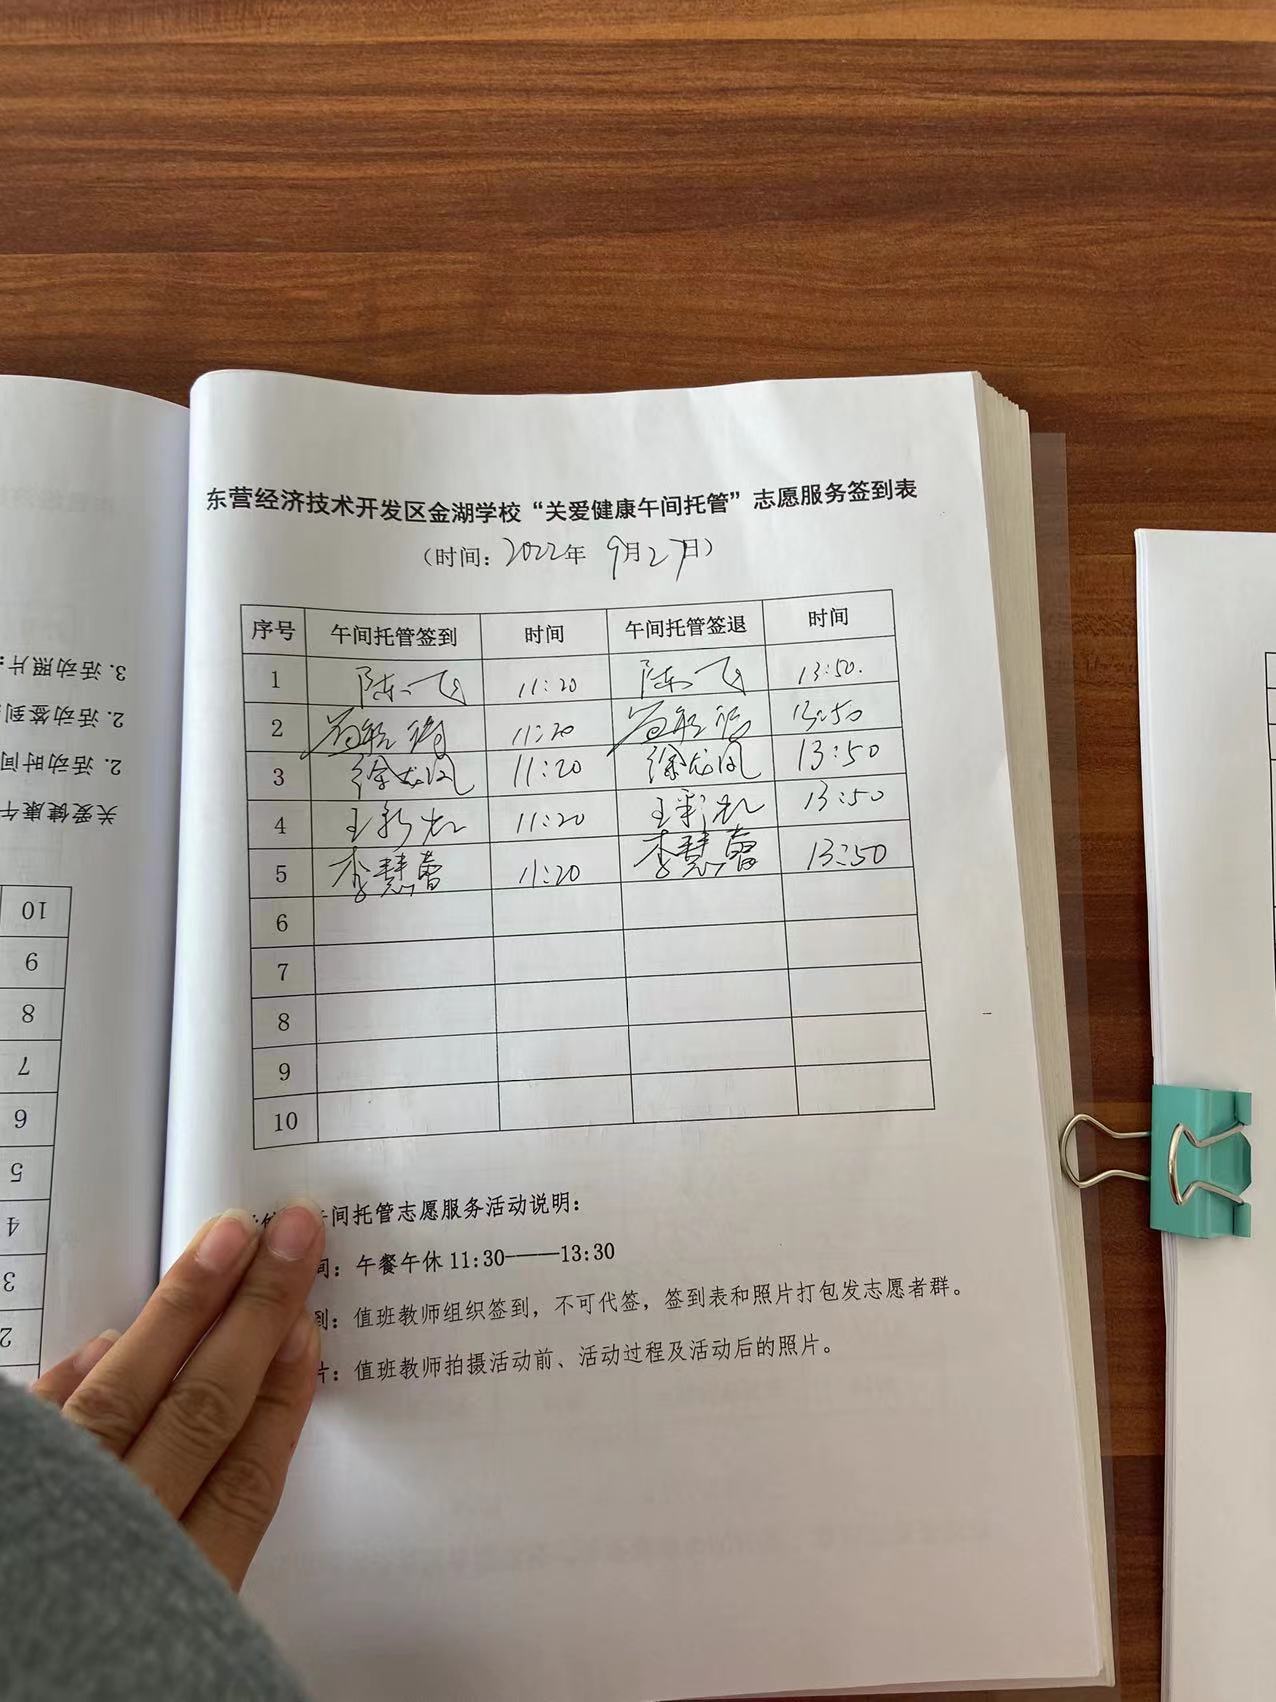 东营经济技术开发区金湖学校“关爱健康午间托管”志愿服务签到表
（时间：2022年 9月27日）
序号 午间托管签到 时间 午间托管签退 时间
1 陈飞 11:20 陈飞 13:50.
2 11:20 13:50
3 徐龙凤 11:20 徐龙凤 13:50
4 王彩 11:20 王彩 13:50
5 李慧蕾 11:20 李慧蕾 13:50
6
7
8
9
10
午间托管志愿服务活动说明：
间：午餐午休 11:30——13:30
到：值班教师组织签到，不可代签，签到表和照片打包发志愿者群。
片：值班教师拍摄活动前、活动过程及活动后的照片。
3. 活动照片：
2. 活动签到
2. 活动时间
关爱健康午
10
9
8
7
6
5
4
3
2